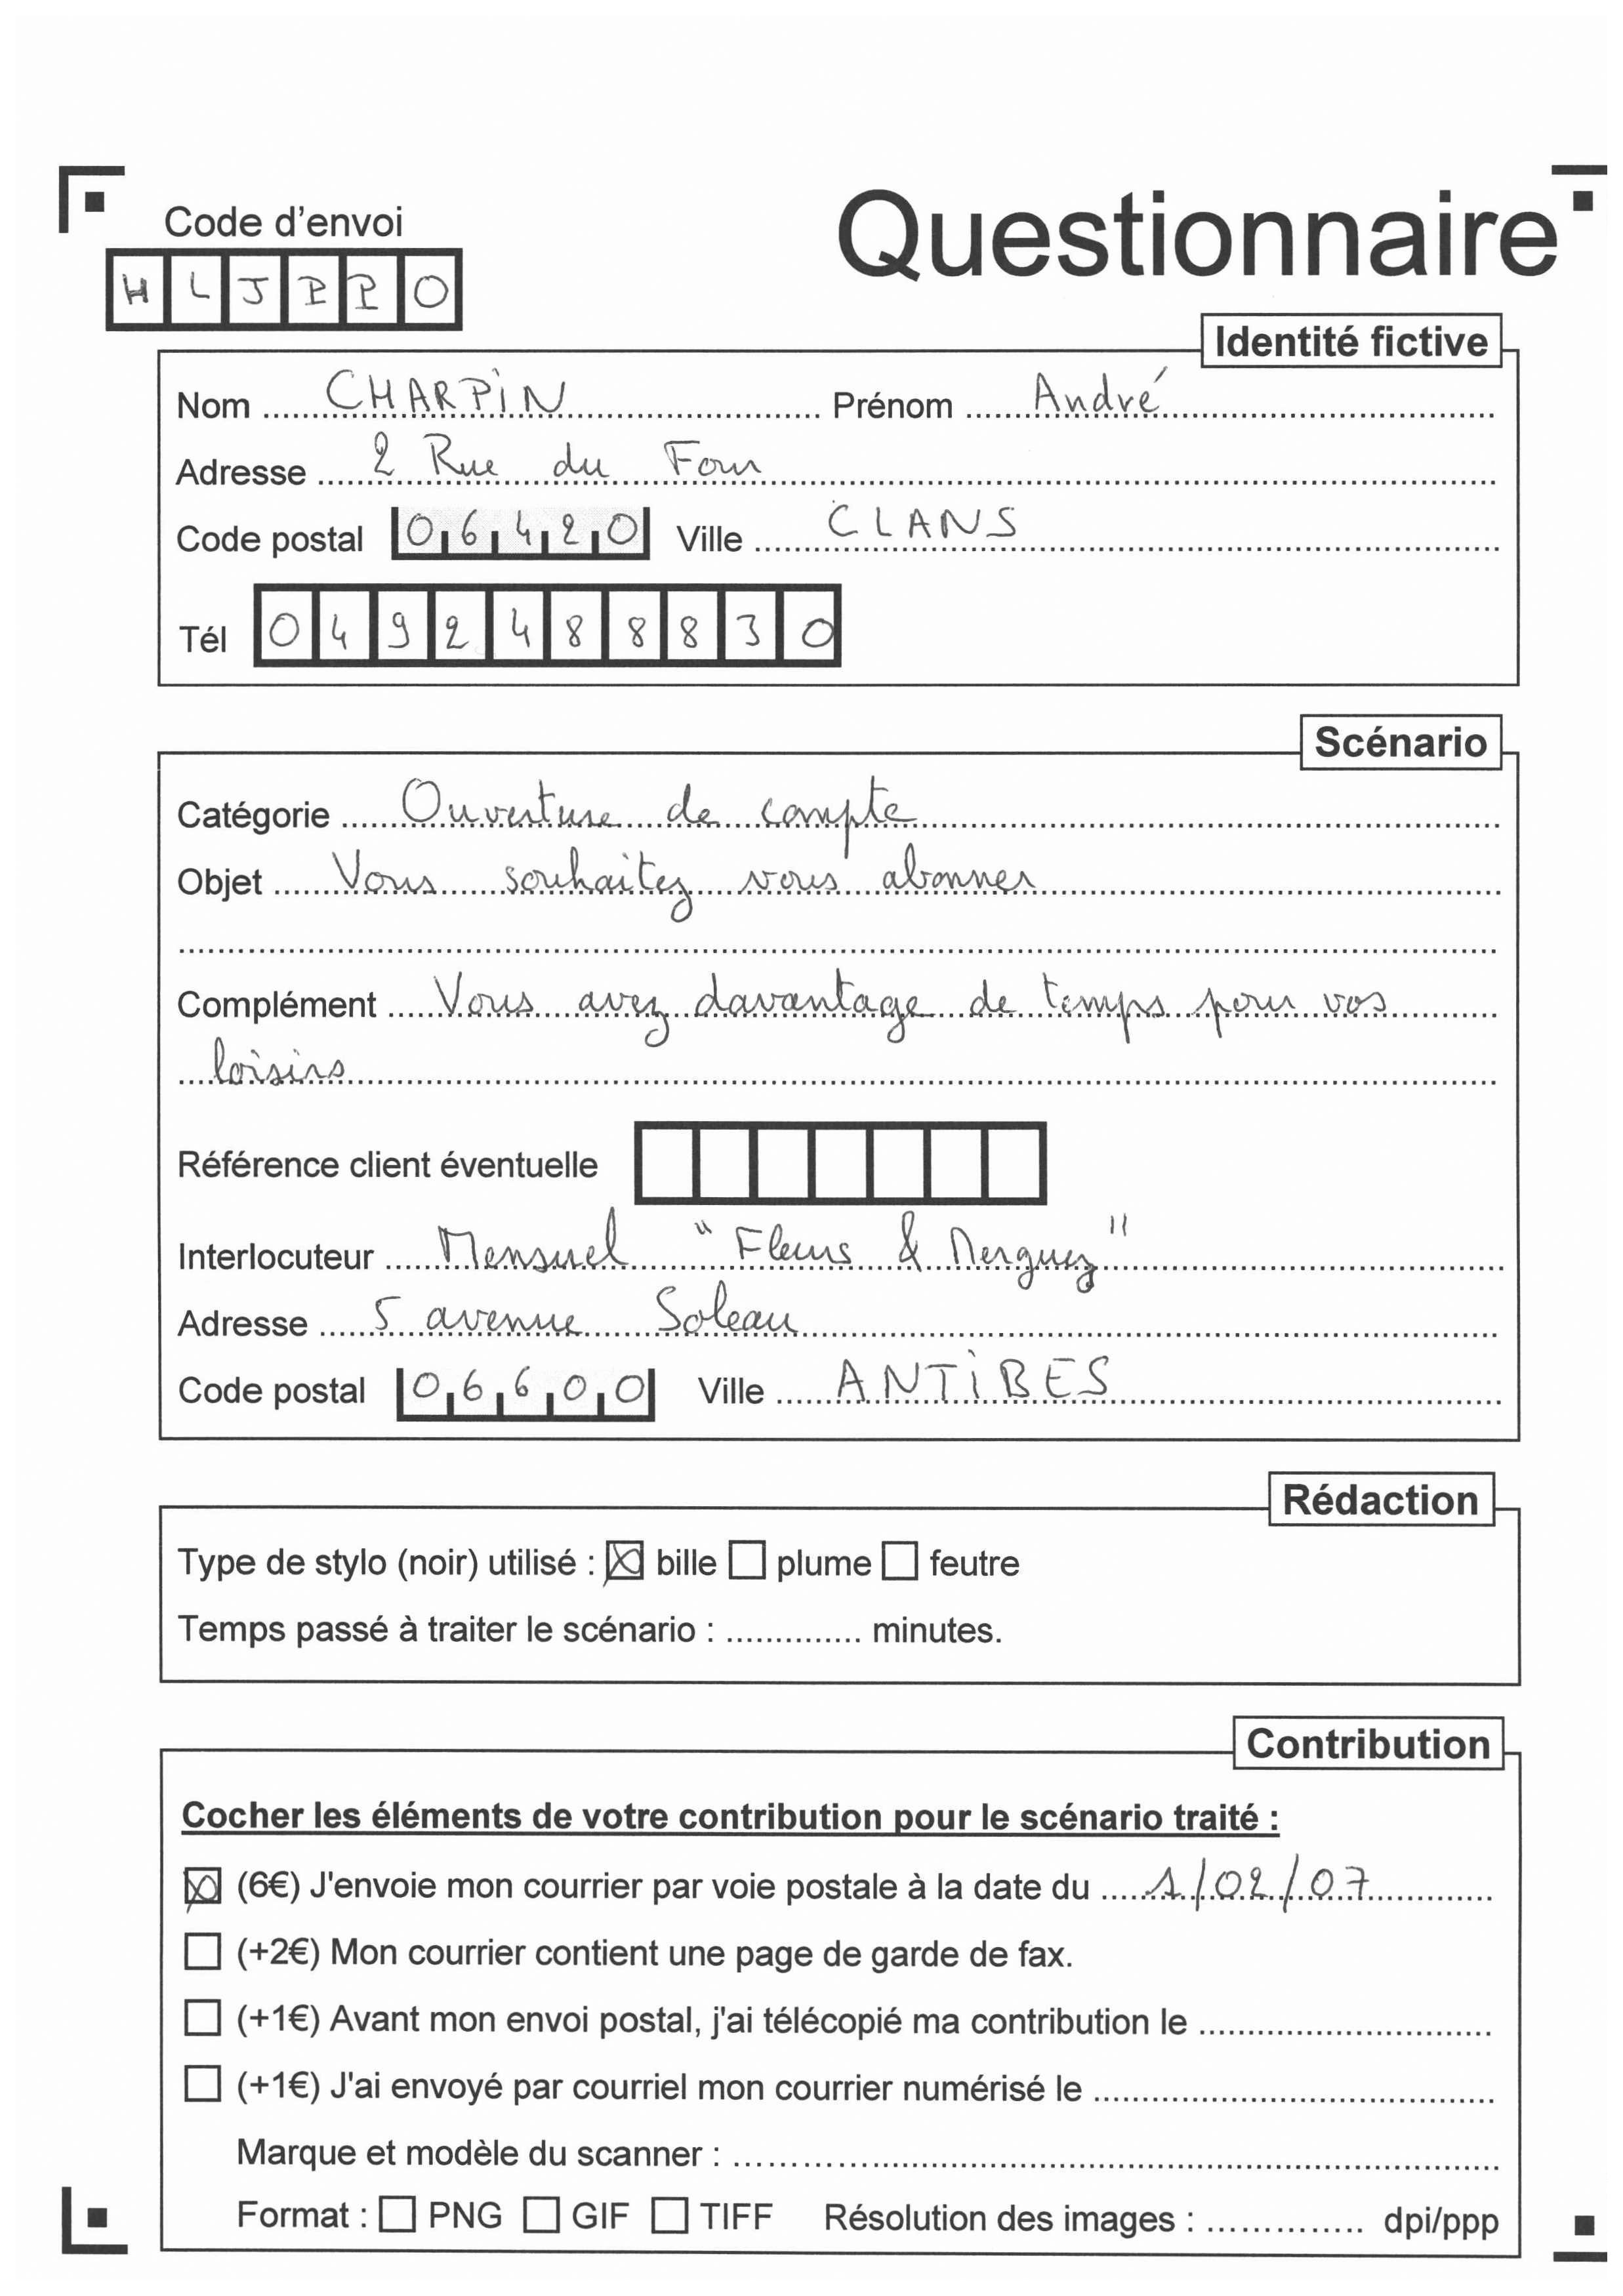 Code d'envoi
Questionnaire
H L J P P O
Identité fictive
Nom CHARPIN Prénom André
Adresse 2 Rue du Four
Code postal 06420 Ville CLANS
Tél 0492488830
Scénario
Catégorie Ouverture de compte
Objet Vous souhaitez vous abonner
Complément Vous avez davantage de temps pour vos
loisirs
Référence client éventuelle
Interlocuteur Mensuel "Fleurs & Merguez"
Adresse 5 avenue Soleau
Code postal 06600 Ville ANTIBES
Rédaction
Type de stylo (noir) utilisé : ☒ bille ☐ plume ☐ feutre
Temps passé à traiter le scénario : .............. minutes.
Contribution
Cocher les éléments de votre contribution pour le scénario traité :
☒ (6€) J'envoie mon courrier par voie postale à la date du 1/02/07
☐ (+2€) Mon courrier contient une page de garde de fax.
☐ (+1€) Avant mon envoi postal, j'ai télécopié ma contribution le
☐ (+1€) J'ai envoyé par courriel mon courrier numérisé le
Marque et modèle du scanner :
Format : ☐ PNG ☐ GIF ☐ TIFF Résolution des images : .............. dpi/ppp